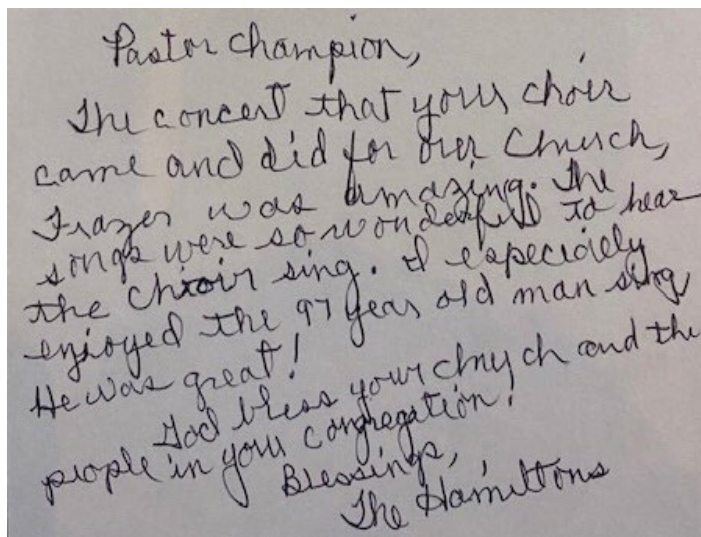 Pastor Champion,
The concert that your choir
came and did for our Church,
Frazer was amazing. The
songs were so wonderful to hear
the choir sing. I especially
enjoyed the 97 years old man sing
He was great!
God bless your church and the
people in your congregation!
Blessings,
The Hamiltons